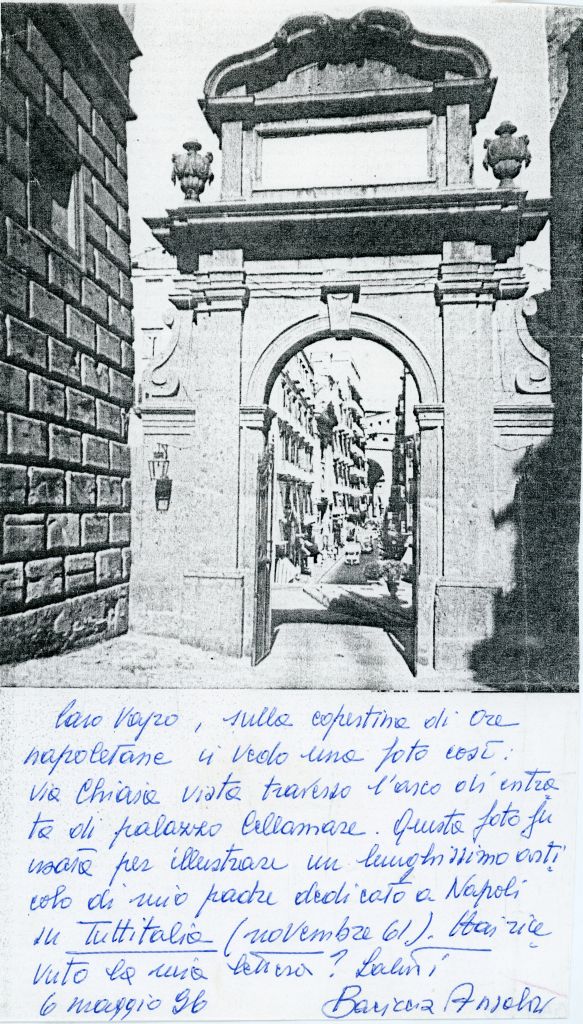 Caro Vajro, sulla copertina di Ore
napoletane ci vedo una foto così:
via Chiaia vista traverso l'arco di entra
ta di palazzo Cellamare. Questa foto fu
usata per illustrare un lunghissimo arti
colo di mio padre dedicato a Napoli
su Tuttitalia (novembre 61). Hai rice
vuto la mia lettera? Saluti
6 maggio 96